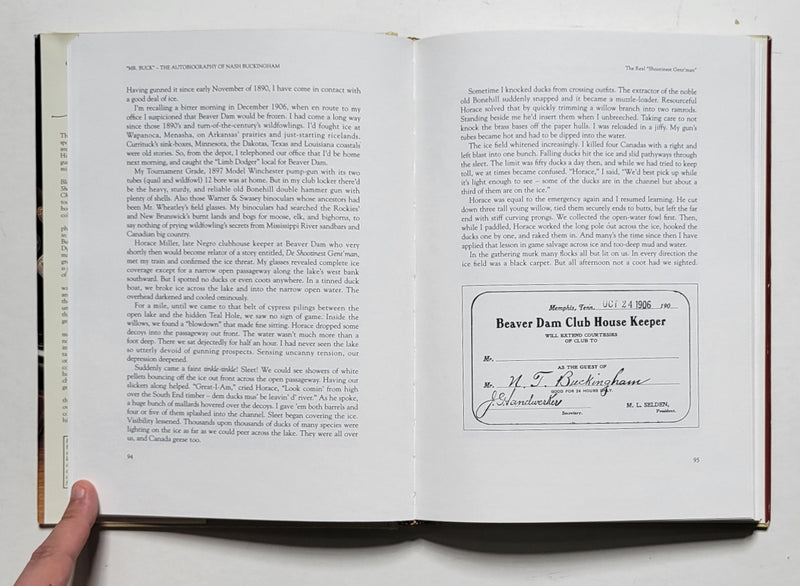 "MR. BUCK" – THE AUTOBIOGRAPHY OF NASH BUCKINGHAM
Having gunned it since early November of 1890, I have come in contact with
a good deal of ice.
I'm recalling a bitter morning in December 1906, when en route to my
office I suspicioned that Beaver Dam would be frozen. I had come a long way
since those 1890's and turn-of-the-century's wildfowlings. I'd fought ice at
Wapanoca, Menasha, on Arkansas' prairies and just-starting ricelands.
Currituck's sink-boxes, Minnesota, the Dakotas, Texas and Louisiana coastals
were old stories. So, from the depot, I telephoned our office that I'd be home
next morning, and caught the "Limb Dodger" local for Beaver Dam.
My Tournament Grade, 1897 Model Winchester pump-gun with its two
tubes (quail and wildfowl) 12 bore was at home. But in my club locker there'd
be the heavy, sturdy, and reliable old Bonehill double hammer gun with
plenty of shells. Also those Warner & Swasey binoculars whose ancestors had
been Mr. Wheatley's field glasses. My binoculars had searched the Rockies'
and New Brunswick's burnt lands and bogs for moose, elk, and bighorns, to
say nothing of prying wildfowling's secrets from Mississippi River sandbars and
Canadian big country.
Horace Miller, late Negro clubhouse keeper at Beaver Dam who very
shortly then would become relator of a story entitled, De Shootinest Gent'man,
met my train and confirmed the ice threat. My glasses revealed complete ice
coverage except for a narrow open passageway along the lake's west bank
southward. But I spotted no ducks or even coots anywhere. In a tinned duck
boat, we broke ice across the lake and into the narrow open water. The
overhead darkened and cooled ominously.
For a mile, until we came to that belt of cypress pilings between the
open lake and the hidden Teal Hole, we saw no sign of game. Inside the
willows, we found a "blowdown" that made fine sitting. Horace dropped some
decoys into the passageway out front. The water wasn't much more than a
foot deep. There we sat dejectedly for half an hour. I had never seen the lake
so utterly devoid of gunning prospects. Sensing uncanny tension, our
depression deepened.
Suddenly came a faint tinkle-tinkle! Sleet! We could see showers of white
pellets bouncing off the ice out front across the open passageway. Having our
slickers along helped. "Great-I-Am," cried Horace, "Look comin' from high
over the South End timber – dem ducks mus' be leavin' d' river." As he spoke,
a huge bunch of mallards hovered over the decoys. I gave 'em both barrels and
four or five of them splashed into the channel. Sleet began covering the ice.
Visibility lessened. Thousands upon thousands of ducks of many species were
lighting on the ice as far as we could peer across the lake. They were all over
us, and Canada geese too.
94
The Real "Shootinest Gent'man"
Sometime I knocked ducks from crossing outfits. The extractor of the noble
old Bonehill suddenly snapped and it became a muzzle-loader. Resourceful
Horace solved that by quickly trimming a willow branch into two ramrods.
Standing beside me he'd insert them when I unbreeched. Taking care to not
knock the brass bases off the paper hulls. I was reloaded in a jiffy. My gun's
tubes became hot and had to be dipped into the water.
The ice field whitened increasingly. I killed four Canadas with a right and
left blast into one bunch. Falling ducks hit the ice and slid pathways through
the sleet. The limit was fifty ducks a day then, and while we had tried to keep
toll, we at times became confused. "Horace," I said, "We'd best pick up while
it's light enough to see – some of the ducks are in the channel but about a
third of them are on the ice."
Horace was equal to the emergency again and I resumed learning. He cut
down three tall young willow, tied them securely ends to butts, but left the far
end with stiff curving prongs. We collected the open-water fowl first. Then,
while I paddled, Horace worked the long pole out across the ice, hooked the
ducks one by one, and raked them in. And many's the time since then I have
applied that lesson in game salvage across ice and too-deep mud and water.
In the gathering murk many flocks all but lit on us. In every direction the
ice field was a black carpet. But all afternoon not a coot had we sighted.
Memphis, Tenn. OCT 24 1906 190
Beaver Dam Club House Keeper
WILL EXTEND COURTESIES
OF CLUB TO
Mr.
AS THE GUEST OF
Mr. N. T. Buckingham
GOOD FOR 24 HOURS ONLY.
J. G. Handwerker
Secretary.
M. L. SELDEN,
President.
95